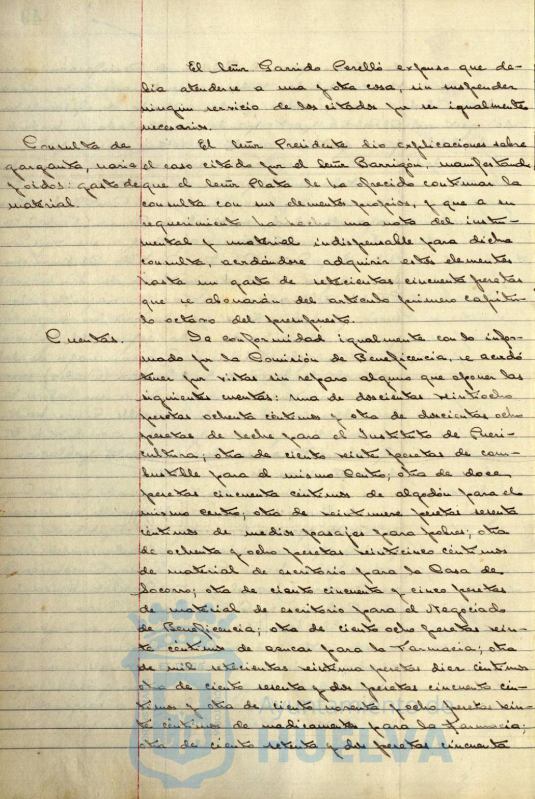 El Señor Garrido Perelló expuso que de-
bia atenderse a una y otra cosa, sin suspender
ningún servicio de los citados por ser igualmente
necesarios.
Consulta de
garganta, nariz
y oidos: gasto de
material.
El Señor Presidente dio explicaciones sobre
el caso citado por el Señor Barrigón, manifestando
que el Señor Plata le ha ofrecido continuar la
consulta con sus elementos propios, y que a su
requerimiento ha hecho una nota del instru-
mental y material indispensable para dicha
consulta, acordándose adquirir estos elementos
hasta un gasto de setecientas cincuenta pesetas
que se abonarán del articulo primero capitu-
lo octavo del presupuesto.
Cuentas.
De conformidad igualmente con lo infor-
mado por la Comisión de Beneficencia, se acordó
tener por vistas sin reparo alguno que oponer las
siguientes cuentas: una de doscientas veintiocho
pesetas ochenta céntimos y otra de doscientas ocho
pesetas de leche para el Instituto de Pueri-
cultura; otra de ciento veinte pesetas de com-
bustible para el mismo Centro; otra de doce
pesetas cincuenta céntimos de algodón para el
mismo centro; otra de veintinueve pesetas sesenta
céntimos de medios pasajes para pobres; otra
de ochenta y ocho pesetas veinticinco céntimos
de material de escritorio para la Casa de
Socorro; otra de ciento cincuenta y cinco pesetas
de material de escritorio para el Negociado
de Beneficencia; otra de ciento ocho pesetas vein-
te céntimos de azucar para la Farmacia; otra
de mil setecientas veintiuna pesetas diez céntimos
otra de ciento sesenta y dos pesetas cincuenta cén-
timos y otra de ciento noventa y ocho pesetas vein-
te céntimos de medicamentos para la Farmacia;
otra de ciento setenta y dos pesetas cincuenta
Ayuntamiento de
HUELVA